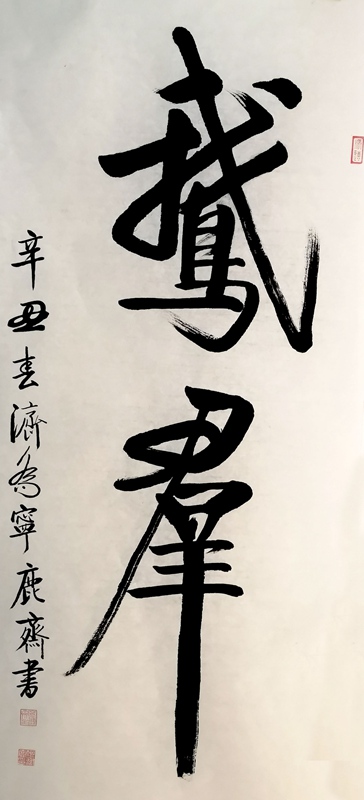 鵞羣
辛丑春濟為寧鹿齋書